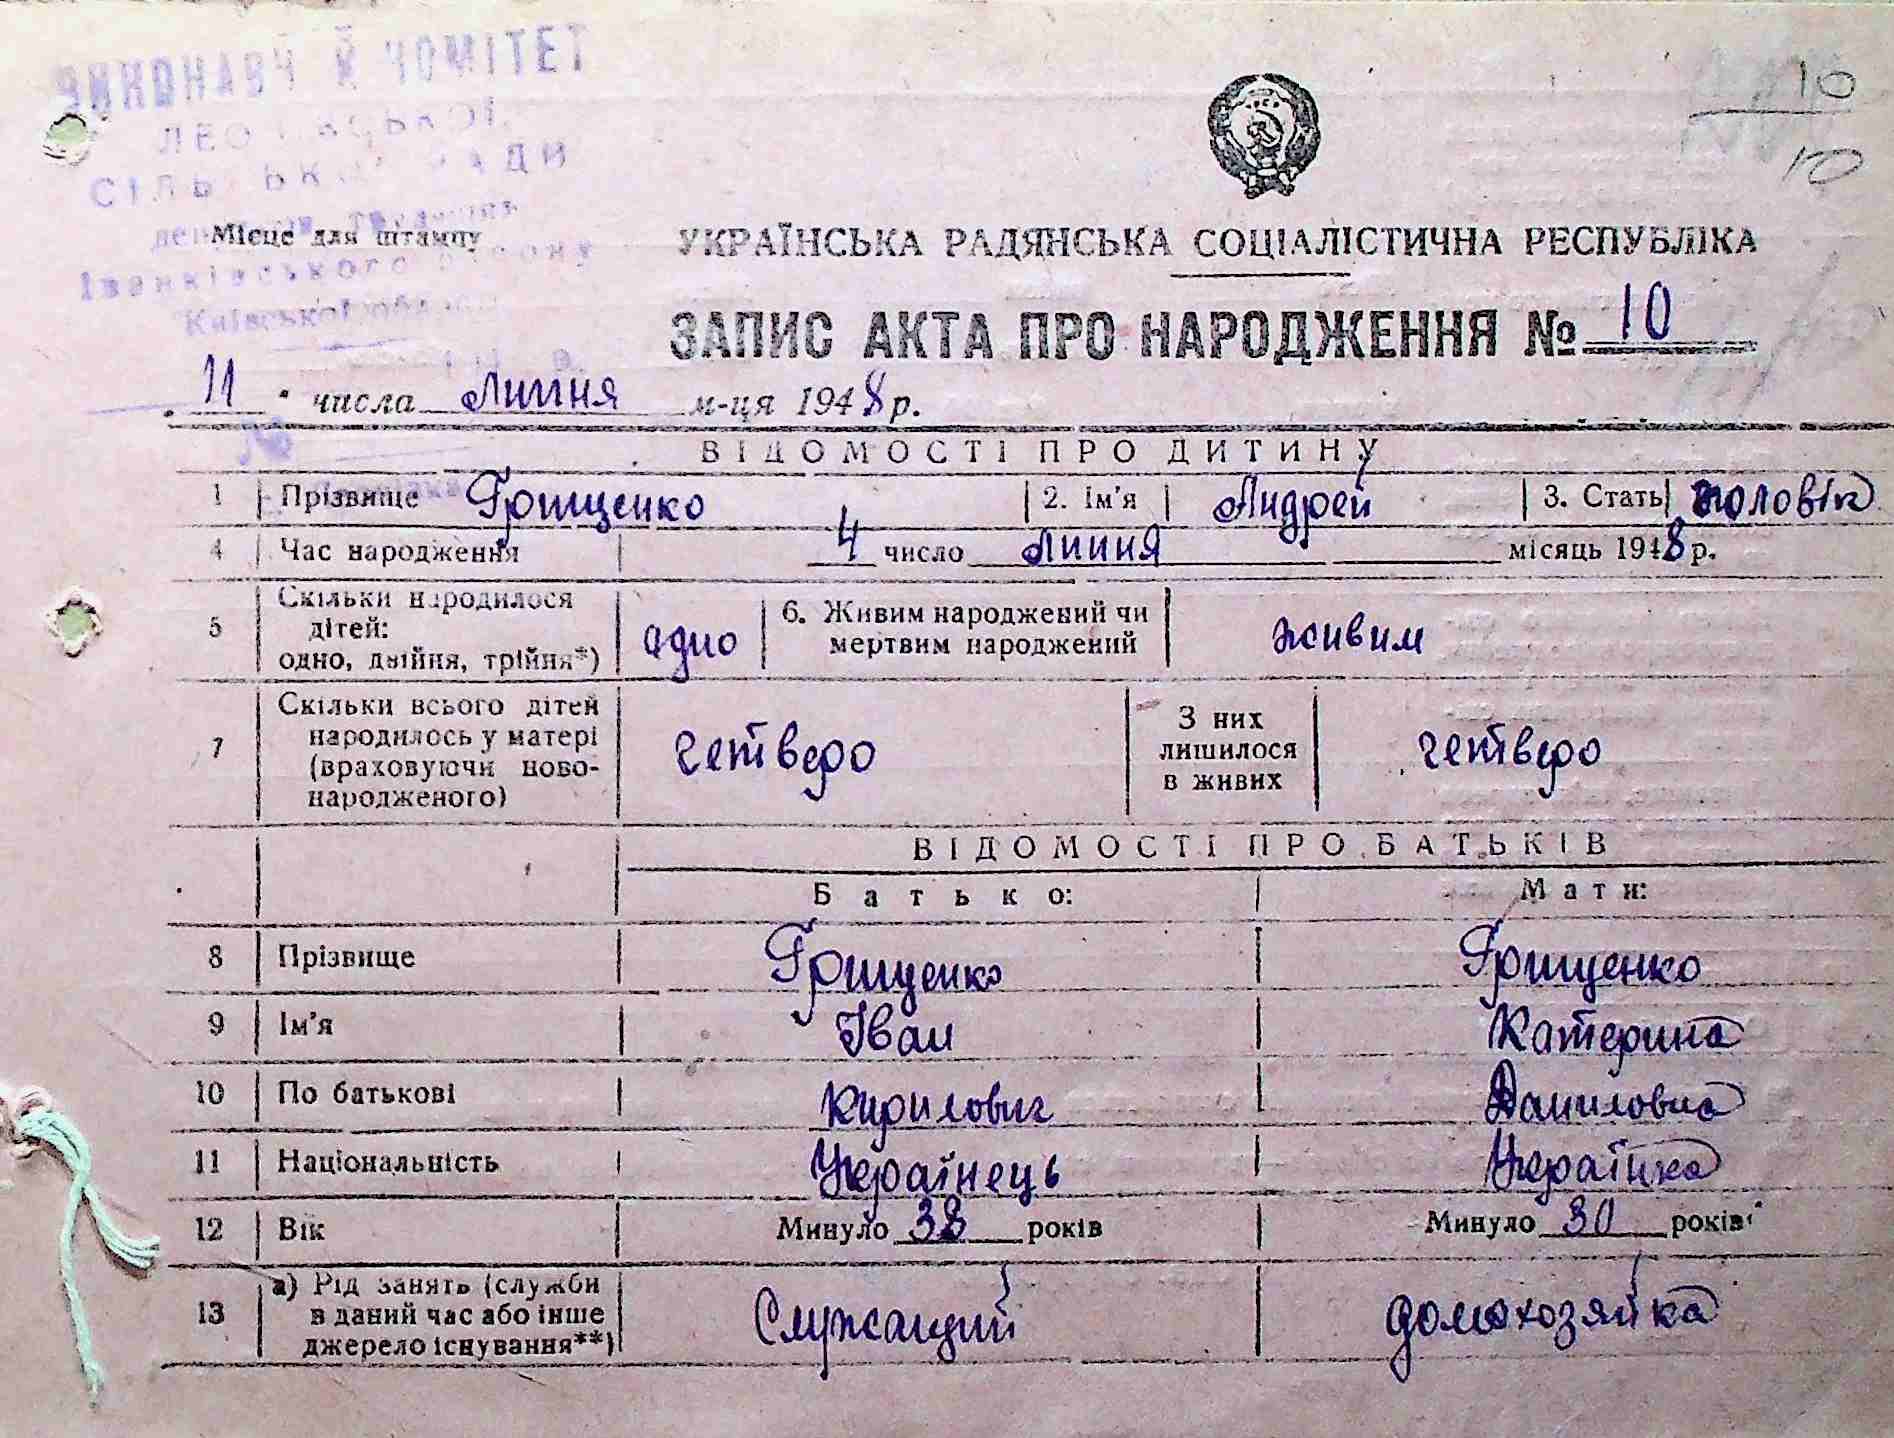 ВИКОНАВЧ Й КОМІТЕТ
СІЛЬ ЬК РАДИ
Іванківського району
Київської
Місце для штампу
10
10
УКРАЇНСЬКА РАДЯНСЬКА СОЦІАЛІСТИЧНА РЕСПУБЛІКА
ЗАПИС АКТА ПРО НАРОДЖЕННЯ № 10
11 " числа Липня м-ця 1948 р.
№
ВІДОМОСТІ ПРО ДИТИНУ
1 Прізвище Грищенко 2. Ім'я Андрей 3. Стать чоловік
4 Час народження 4 число Липня місяць 1948 р.
5 Скільки народилося дітей: одно, двійня, трійня*) одно 6. Живим народжений чи мертвим народжений живим
7 Скільки всього дітей народилось у матері (враховуючи новонародженого) четверо З них лишилося в живих четверо
ВІДОМОСТІ ПРО БАТЬКІВ
Батько: Мати:
8 Прізвище Грищенко Грищенко
9 Ім'я Іван Катерина
10 По батькові Кирилович Даниловна
11 Національність Українець Українка
12 Вік Минуло 38 років Минуло 30 років
13 а) Рід занять (служби в даний час або інше джерело існування**) Служащий домохозяйка